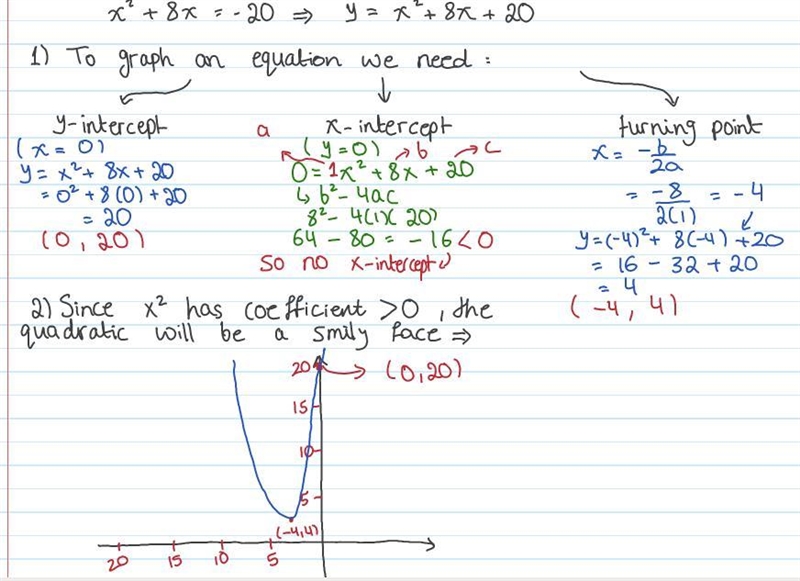 x² + 8x = -20 ⇒ y = x² + 8x + 20
1) To graph an equation we need :
y-intercept
(x = 0)
y = x² + 8x + 20
= 0² + 8(0) + 20
= 20
(0, 20)
x-intercept
(y=0)
a
b
c
0 = 1x² + 8x + 20
↳ b² - 4ac
8² - 4(1)(20)
64 - 80 = -16 < 0
So no x-intercept
turning point
x = -b/2a
= -8/2(1) = -4
y = (-4)² + 8(-4) + 20
= 16 - 32 + 20
= 4
(-4, 4)
2) Since x² has coefficient > 0, the
quadratic will be a smily face ⇒
20 → (0,20)
15
10
5
(-4,4)
20 15 10 5